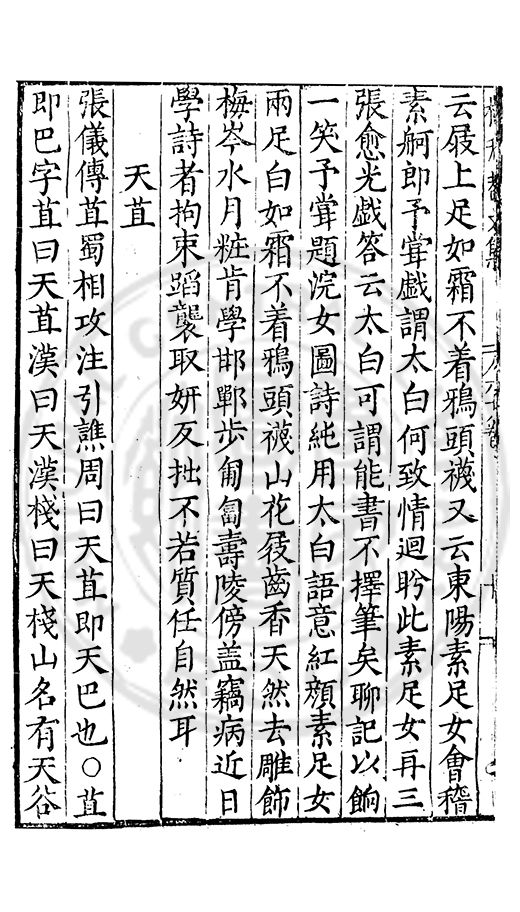 云屐上足如霜不着鴉頭襪又云東陽素足女會稽
素舸郎予甞戲謂太白何致情迴盻此素足女再三
張愈光戲答云太白可謂能書不擇筆矣聊記以餉
一笑予甞題浣女圖詩純用太白語意紅顏素足女
兩足白如霜不着鴉頭襪山花屐齒香天然去雕飾
梅岑水月粧肯學邯鄲步匍匐壽陵傍盖竊病近日
學詩者拘束蹈襲取妍反拙不若質任自然耳
天苴
張儀傳苴蜀相攻注引譙周曰天苴即天巴也○苴
即巴字苴曰天苴漢曰天漢棧曰天棧山名有天谷